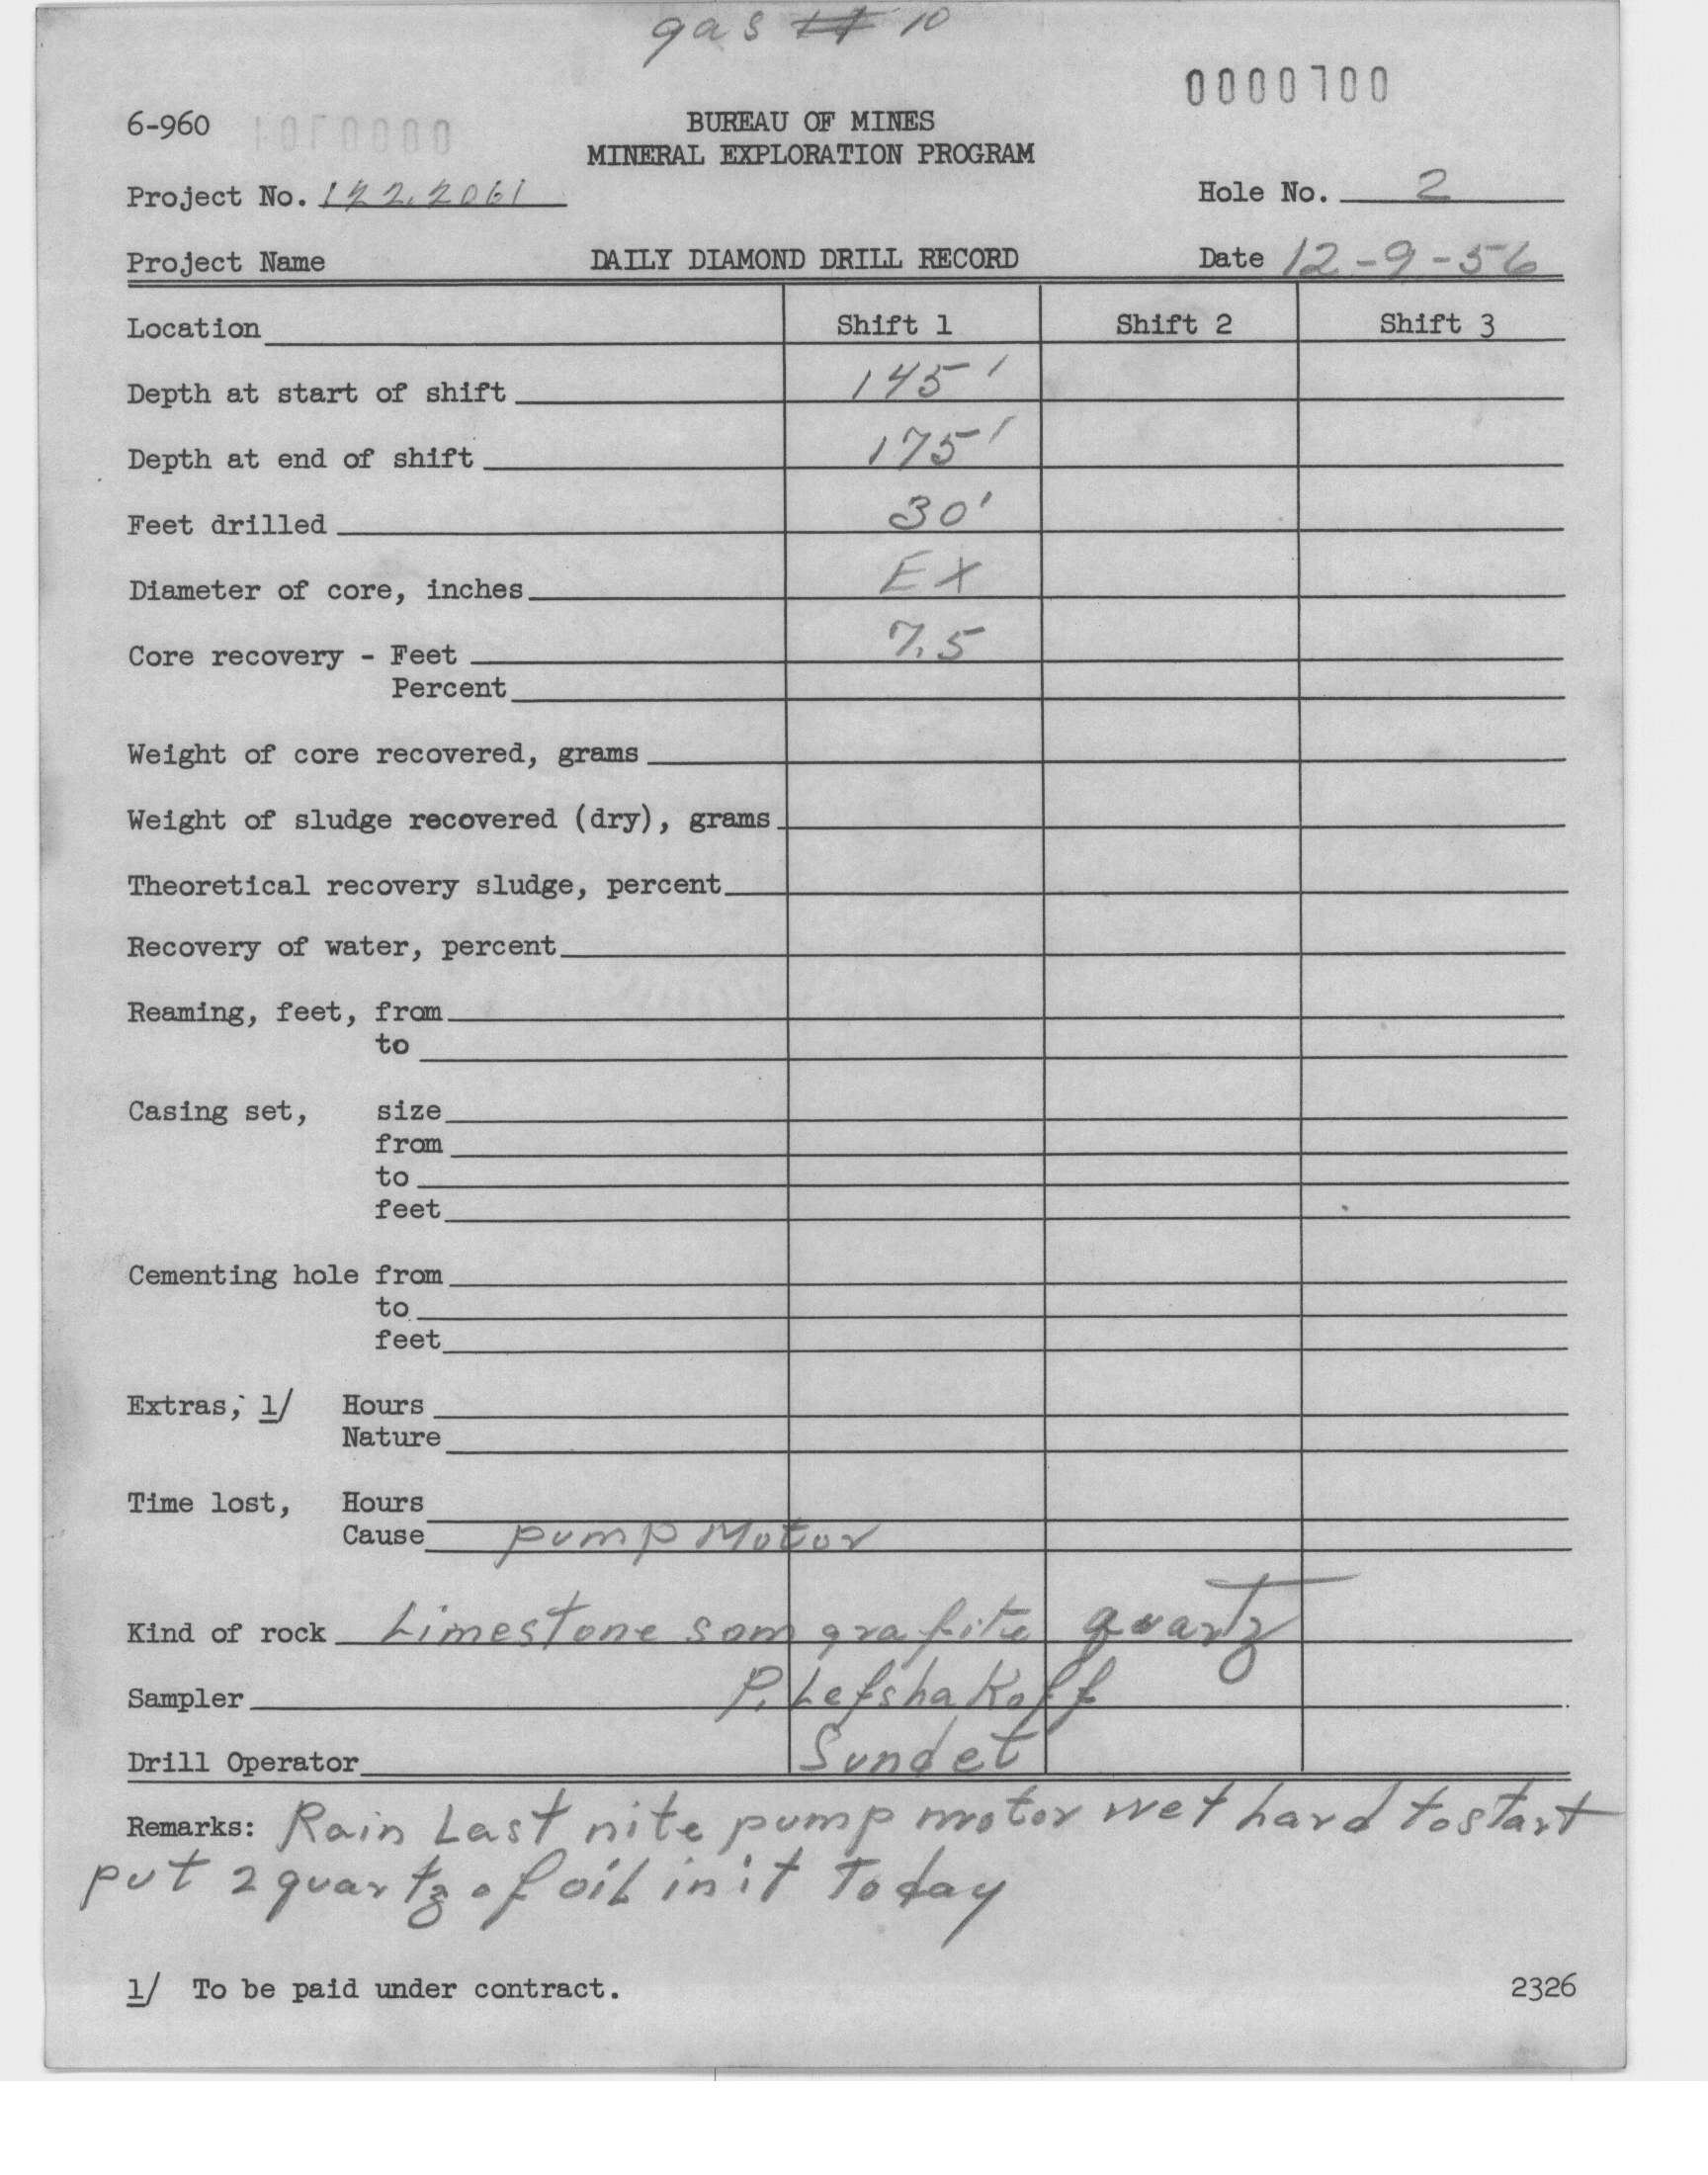 gas 10
0000700
6-960
BUREAU OF MINES
MINERAL EXPLORATION PROGRAM
Project No. 122.2061
Hole No. 2
Project Name DAILY DIAMOND DRILL RECORD Date 12-9-56
Location Shift 1 Shift 2 Shift 3
Depth at start of shift 145'
Depth at end of shift 175'
Feet drilled 30'
Diameter of core, inches EX
Core recovery - Feet 7.5
Percent
Weight of core recovered, grams
Weight of sludge recovered (dry), grams
Theoretical recovery sludge, percent
Recovery of water, percent
Reaming, feet, from
to
Casing set, size
from
to
feet
Cementing hole from
to
feet
Extras, 1/ Hours
Nature
Time lost, Hours
Cause pump Motor
Kind of rock Limestone som grafite quartz
Sampler P. Lefshakoff
Drill Operator Sundet
Remarks: Rain Last nite pump motor wet hard to start
put 2 quartz of oil in it Today
1/ To be paid under contract.
2326